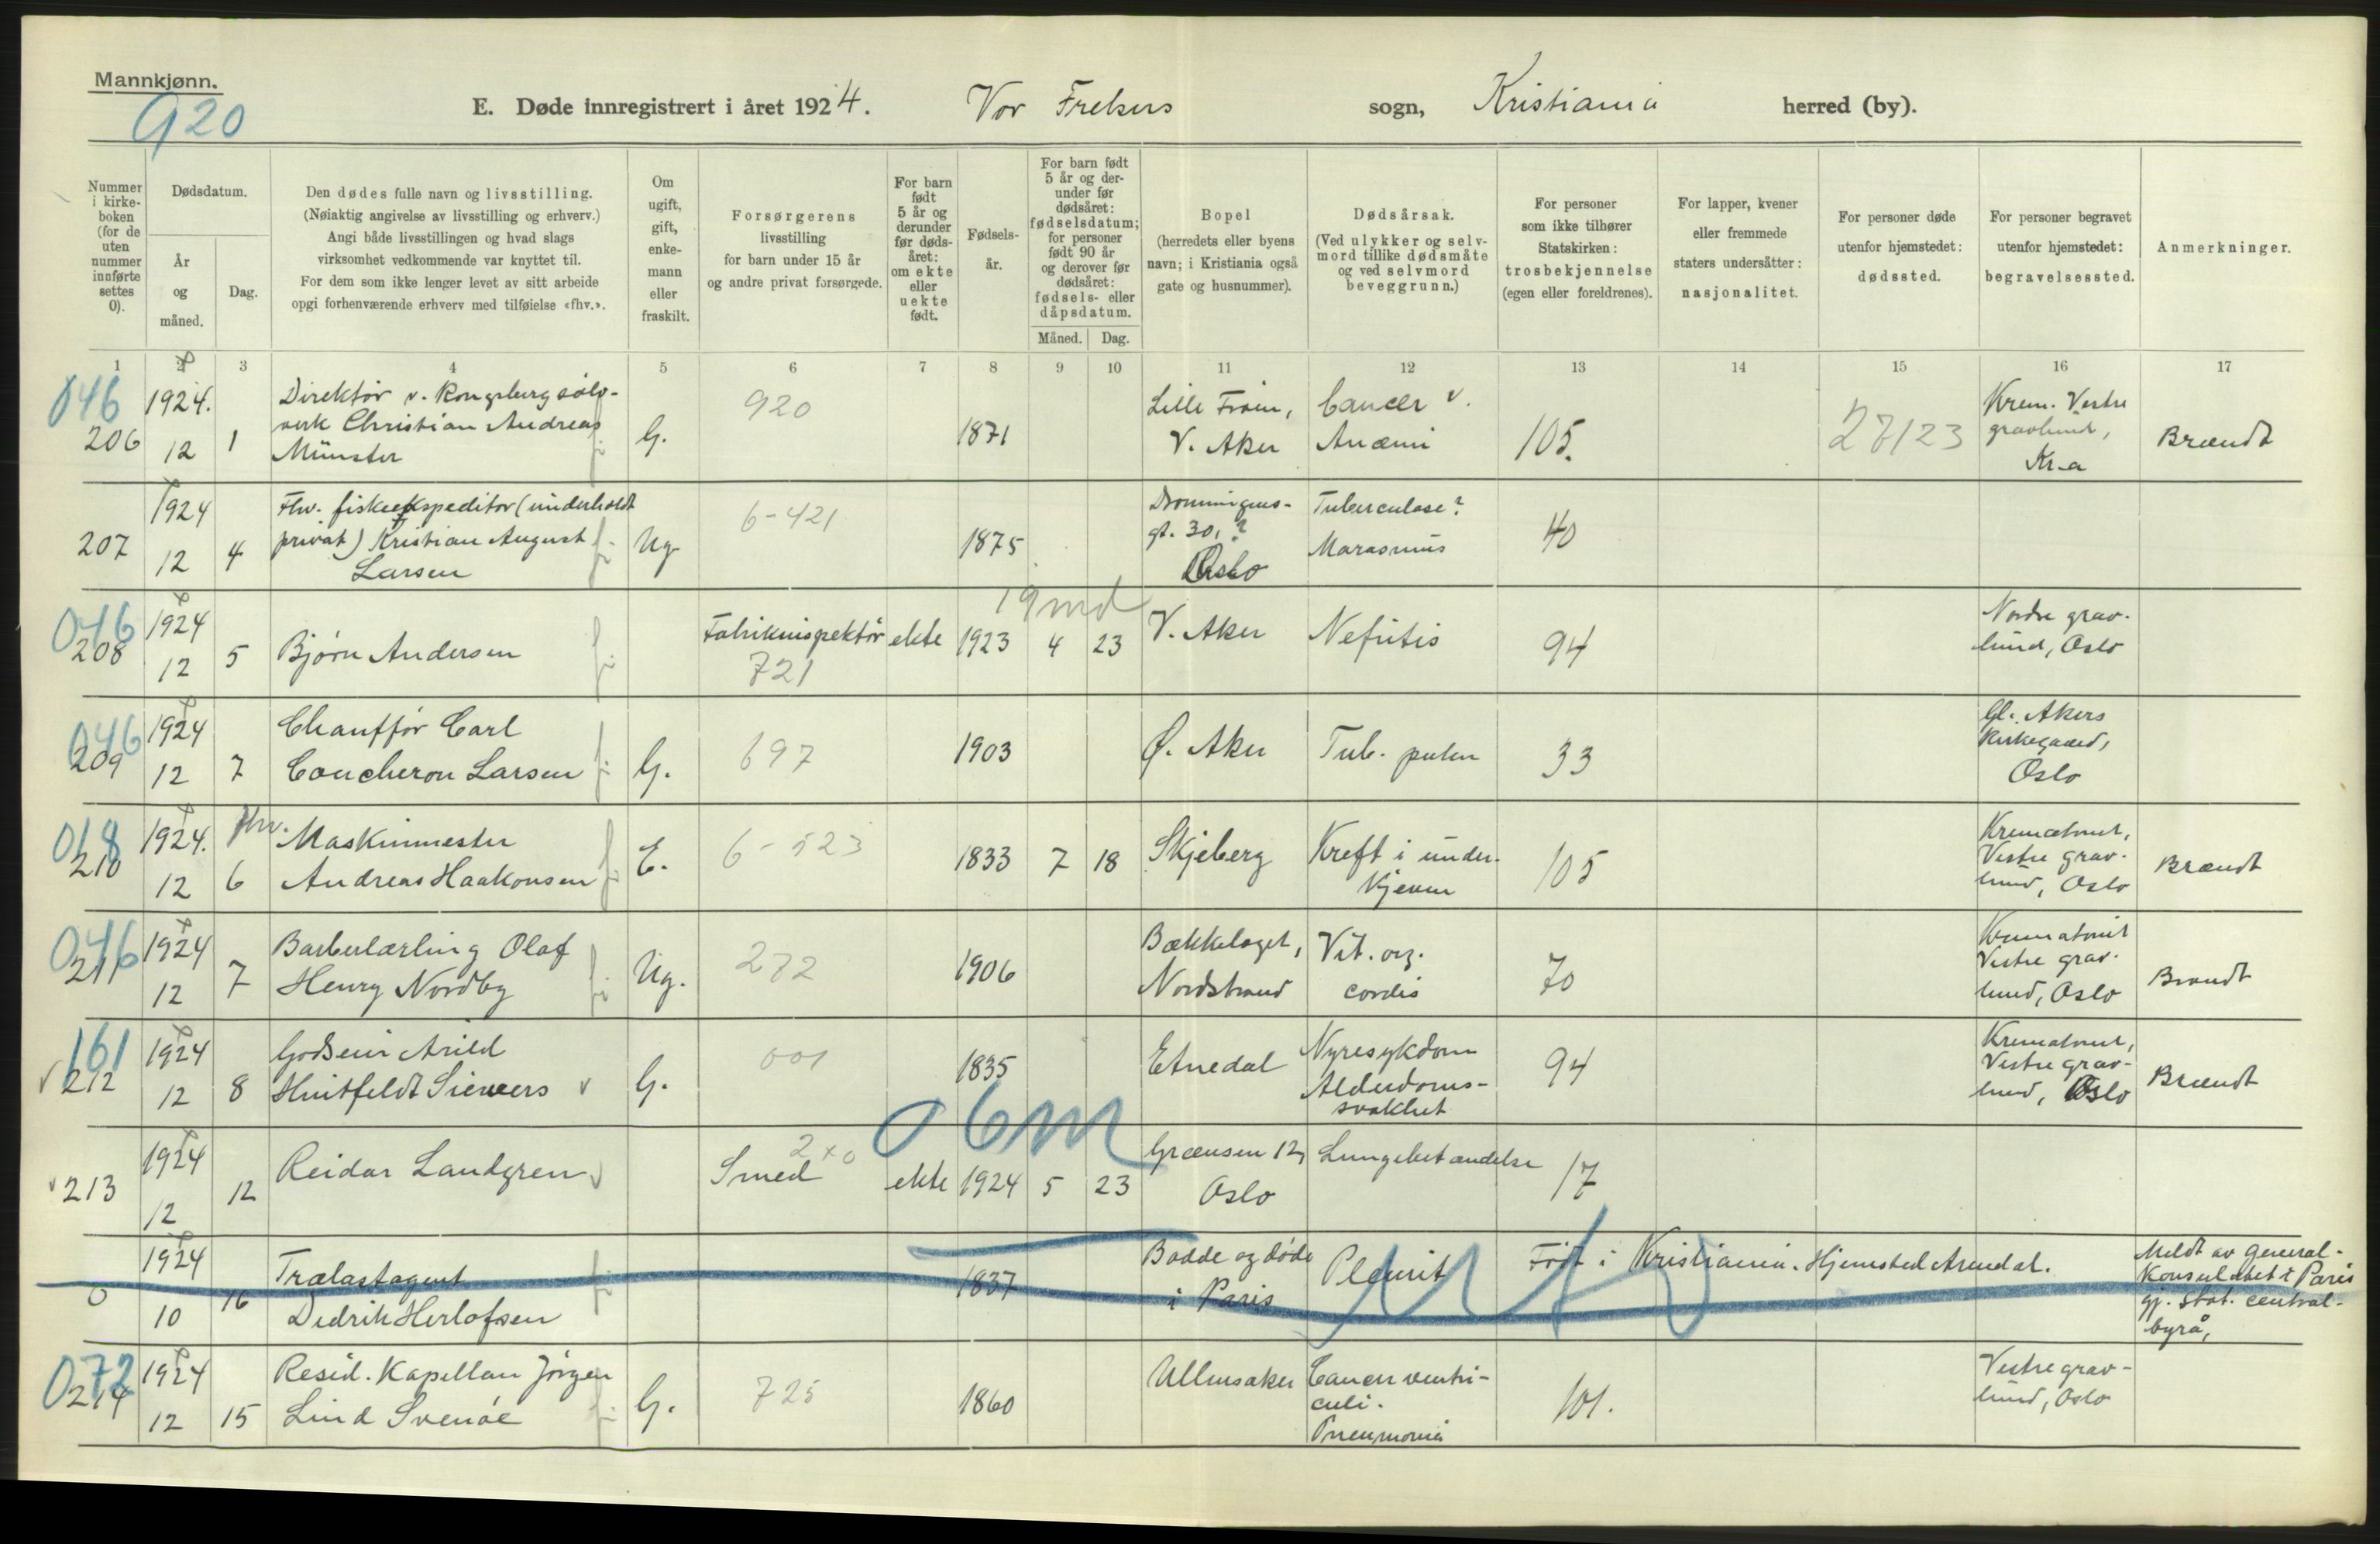 Mannkjønn.
920
E. Døde innregistrert i året 1924. Vor Frelsers sogn, Kristiania herred (by).
Nummer i kirkeboken (for de uten nummer innførte settes 0).
Dødsdatum.
År og måned.
Dag.
Den dødes fulle navn og livsstilling.
(Nøiaktig angivelse av livsstilling og erhverv.)
Angi både livsstillingen og hvad slags
virksomhet vedkommende var knyttet til.
For dem som ikke lenger levet av sitt arbeide
opgi forhenværende erhverv med tilføielse «fhv.».
Om ugift, gift, enkemann eller fraskilt.
Forsørgerens
livsstilling
for barn under 15 år
og andre privat forsørgede.
For barn født 5 år og derunder før dødsåret: om ekte eller uekte født.
Fødselsår.
For barn født 5 år og derunder før dødsåret: fødselsdatum; for personer født 90 år og derover før dødsåret: fødsels- eller dåpsdatum.
Måned. Dag.
Bopel
(herredets eller byens
navn; i Kristiania også
gate og husnummer).
Dødsårsak.
(Ved ulykker og selv-
mord tillike dødsmåte
og ved selvmord
beveggrunn.)
For personer
som ikke tilhører
Statskirken:
trosbekjennelse
(egen eller foreldrenes).
For lapper, kvener
eller fremmede
staters undersåtter:
nasjonalitet.
For personer døde
utenfor hjemstedet:
dødssted.
For personer begravet
utenfor hjemstedet:
begravelsessted.
Anmerkninger.
1 2 3 4 5 6 7 8 9 10 11 12 13 14 15 16 17
046 206 1924. 12 1 Direktør v. Kongsberg sølv-
verk Christian Andreas
Münster G. 920 1871 Lille Frøen,
V. Aker Cancer v.
Anæmi 105. 27/23 Krem. Vestre
gravlund,
Kr.a Brændt
207 1924 12 4 Fhv. fiskeekspeditør (underholdt
privat) Kristian August
Larsen Ug. 6-421 1875 Dronningens-
gt. 30, ?
Oslo Tuberculose?
Marasmus 40
046 208 1924 12 5 Bjørn Andersen Fabrikinspektør
721 ekte 1923 4 23 19 md V. Aker Nefritis 94 Nordre grav-
lund, Oslo
046 209 1924 12 7 Chauffør Carl
Coucheron Larsen G. 697 1903 Ø. Aker Tub. pulm 33 Gl. Akers
Kirkegaard,
Oslo
018 210 1924. 12 6 fhv. Maskinmester
Andreas Haakonsen E. 6-523 1833 7 18 Skjeberg Kreft i under-
kjeven 105 Krematoriet,
Vestre grav-
lund, Oslo Brændt
046 211 1924 12 7 Barberlærling Olaf
Henry Nordby Ug. 272 1906 Bækkelaget,
Nordstrand Vit. org.
cordis 70 Krematoriet
Vestre grav-
lund, Oslo Brændt
161 212 1924 12 8 Godseier Arild
Huitfeldt Sieveers G. 001 1835 Etnedal Nyresykdom
Alderdoms-
svakhet 94 Krematoriet,
Vestre grav-
lund, Oslo Brændt
213 1924 12 12 Reidar Landgren Smed 2x0 ekte 1924 5 23 06m Grænsen 12,
Oslo Lungebetændelse 17
0 1924 10 16 Trælastagent
Didrik Herlofsen 1837 Bodde og døde
i Paris Pleurit Født i Kristiania. Hjemsted Arendal. Meldt av General-
Konsulatet i Paris
gj. stat. central-
byrå,
072 214 1924 12 15 Resid. Kapellan Jørgen
Lind Svenøe G. 725 1860 Ullensaker Cancer ventri-
culi.
Pneumonia 101. Vestre grav-
lund, Oslo